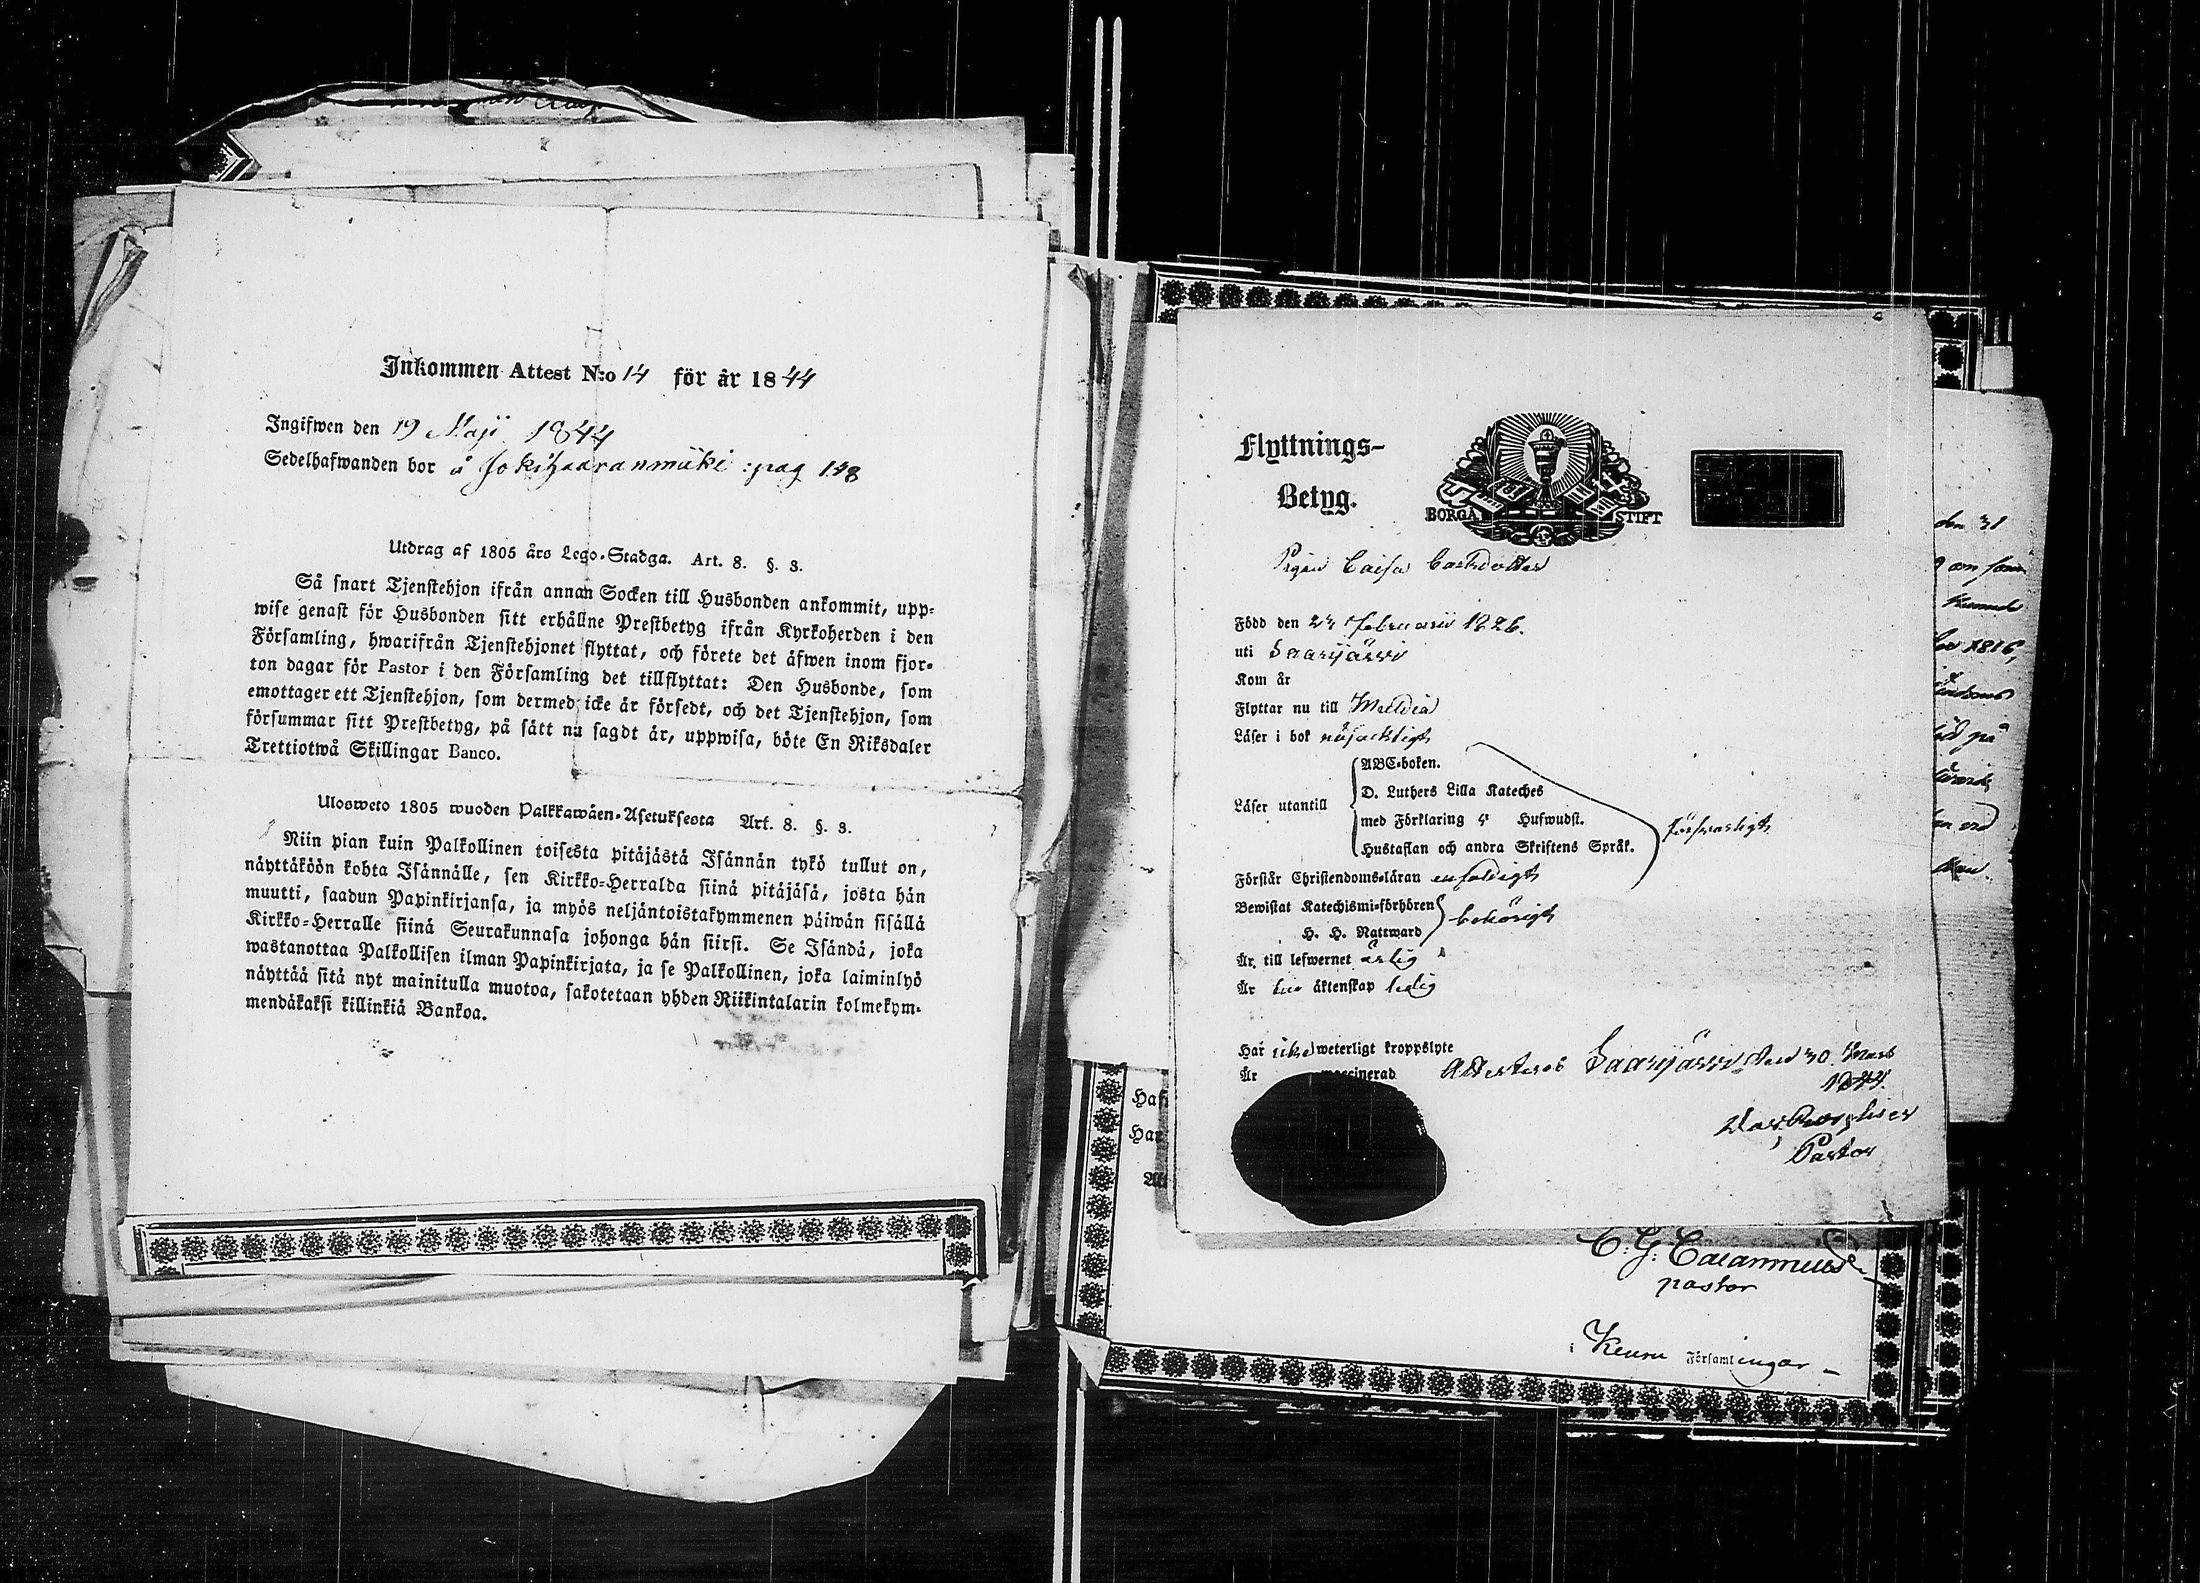 Inkommen Attest N:o 14 för år 1844
Ingifwen den 19 Maji 1844
Sedelhafwanden bor å Jokihaaranmäki :pag 148
Utdrag af 1805 års Lego-Stadga. Art. 8. §. 3.
Så snart Tjenstehjon ifrån annan Socken till Husbonden ankommit, upp-
wise genast för Husbonden sitt erhållne Prestbetyg ifrån Kyrkoherden i den
Församling, hwarifrån Tjenstehjonet flyttat, och förete det äfwen inom fjor-
ton dagar för Pastor i den Församling det tillflyttat: Den Husbonde, som
emottager ett Tjenstehjon, som dermed icke är försedt, och det Tjenstehjon, som
försummar sitt Prestbetyg, på sätt nu sagdt är, uppwisa, böte En Riksdaler
Trettiotwå Skillingar Banco.
Ulosweto 1805 wuoden Palkkawäen-Asetuksesta Art. 8. §. 3.
Niin pian kuin Palkollinen toisesta pitäjästä Isännän tykö tullut on,
näyttäköön kohta Isännälle, sen Kirkko-Herralda siinä pitäjäsä, josta hän
muutti, saadun Papinkirjansa, ja myös neljäntoistakymmenen päiwän sisällä
Kirkko-Herralle siinä Seurakunnasa johonga hän siirsi. Se Isändä, joka
wastanottaa Palkollisen ilman Papinkirjata, ja se Palkollinen, joka laiminlyö
näyttää sitä nyt mainitulla muotoa, sakotetaan yhden Riikintalarin kolmekym-
mendäkaksi killinkiä Bankoa.
Flyttnings-
Betyg.
BORGÅ STIFT
Pigan Caisa Carlsdotter
Född den 24 Februarii 1826.
uti Saarijärvi
Kom år
Flyttar nu till Multia
Läser i bok nöjacktigt
Läser utantill
ABC-boken.
D. Luthers Lilla Kateches
med Förklaring Hufwudst.
Hustaflan och andra Skriftens Språk.
försvarligt
Förstår Christendoms-läran enfaldigt
Bewistat Katechismi-förhören
H. H. Nattward
behörigt
Är till lefwernet ärlig
Är äktenskap ledig
Har icke weterligt kroppslyte
Är waccinerad
Attesteras Saarijärvi den 30 Mars
1844.
Pastor
C. G. Calamnius
pastor
i Keuru Församlingar